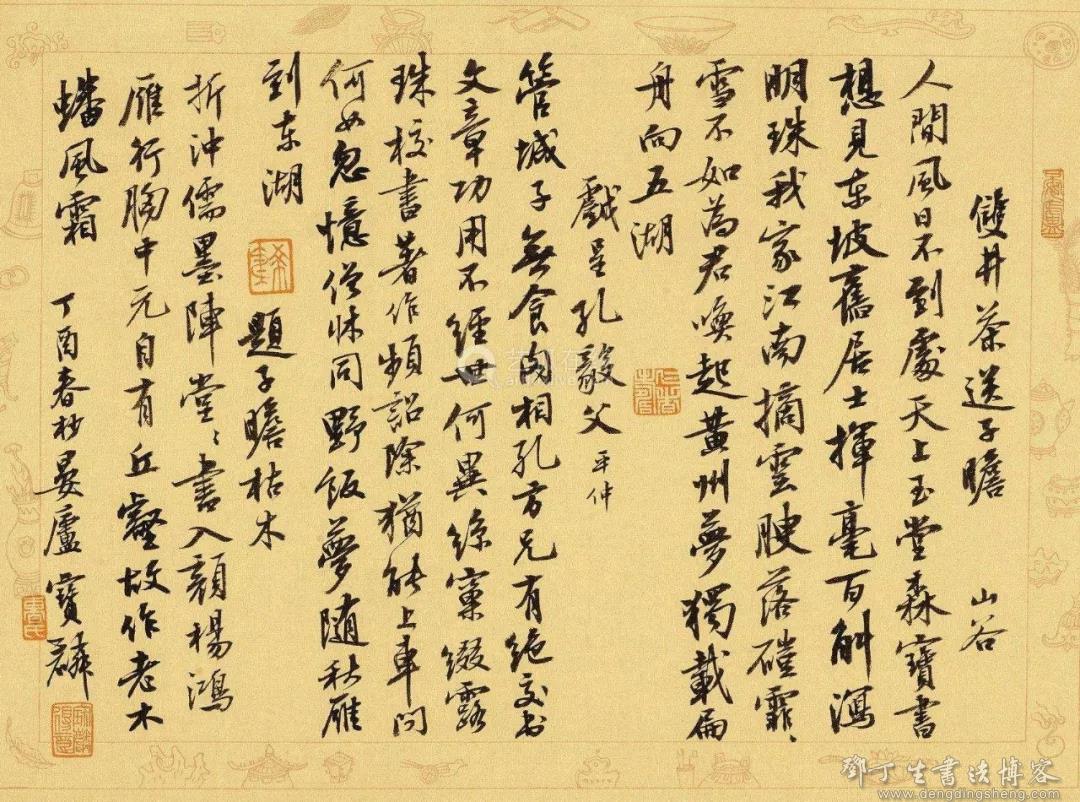 雙井茶送子瞻 山谷
人間風日不到處天上玉堂森寶書
想見東坡舊居士揮毫百斛瀉
明珠我家江南摘雲腴落磑霏〻
雪不如為君喚起黃州夢獨載扁
舟向五湖
戲呈孔毅父 平仲
管城子無食肉相孔方兄有絕交書
文章功用不經世何異絲窠綴露
珠校書著作頻詔除猶能上車問
何如忽憶僧牀同野飯夢隨秋雁
到東湖 題子瞻枯木
折沖儒墨陣堂〻書入顏楊鴻
雁行胸中元自有丘壑故作老木
蟠風霜 丁酉春杪晏廬寶麟
鄧丁生書法博客
www.dengdingsheng.com